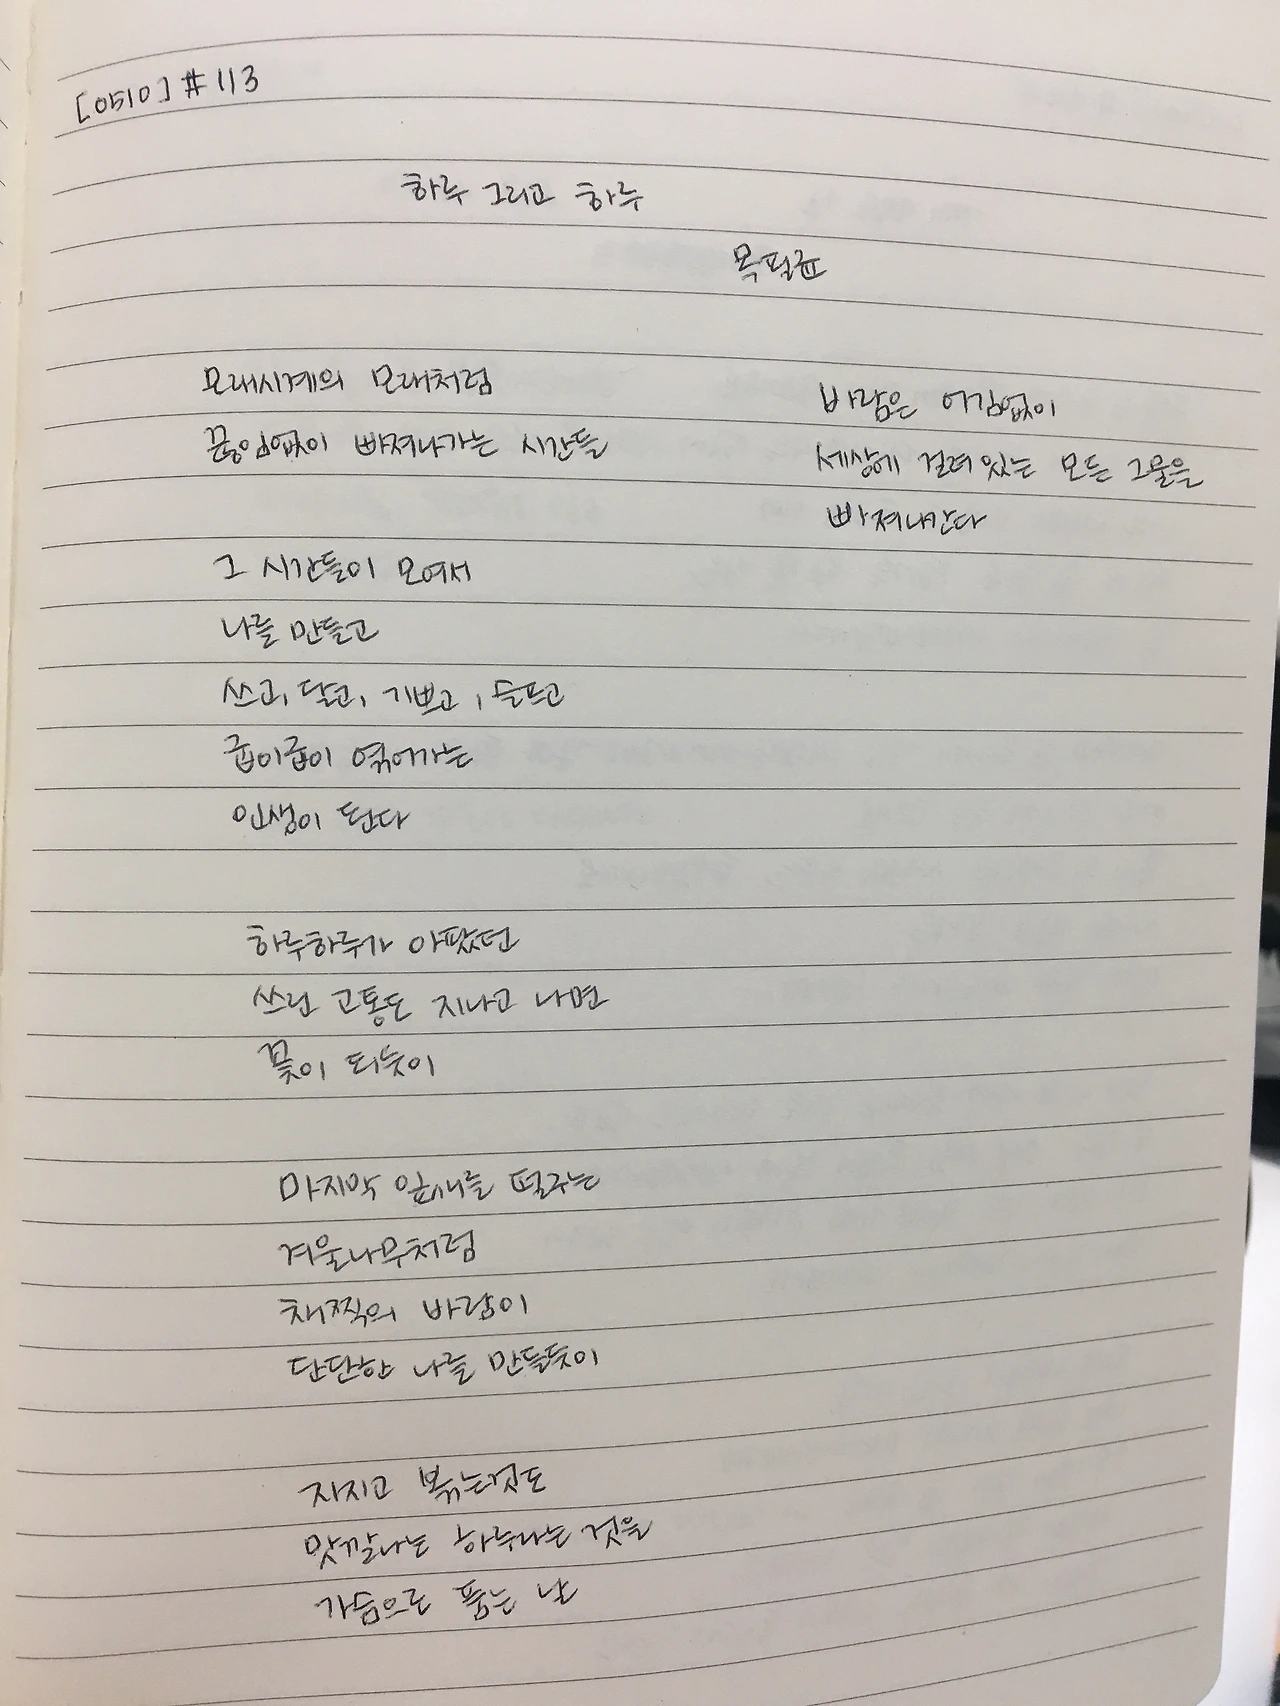 [0510] #113
하루 그리고 하루
목필균
모래시계의 모래처럼
끊임없이 빠져나가는 시간들
그 시간들이 모여서
나를 만들고
쓰고, 달고, 기쁘고, 슬프고
굽이굽이 엮어가는
인생이 된다
하루하루가 아팠던
쓰린 고통도 지나고 나면
꽃이 되듯이
마지막 잎새를 떨구는
겨울나무처럼
채찍의 바람이
단단한 나를 만들듯이
지지고 볶는것도
맛깔나는 하루라는 것을
가슴으로 품는 날
바람은 어김없이
세상에 걸려있는 모든 그물을
빠져나간다